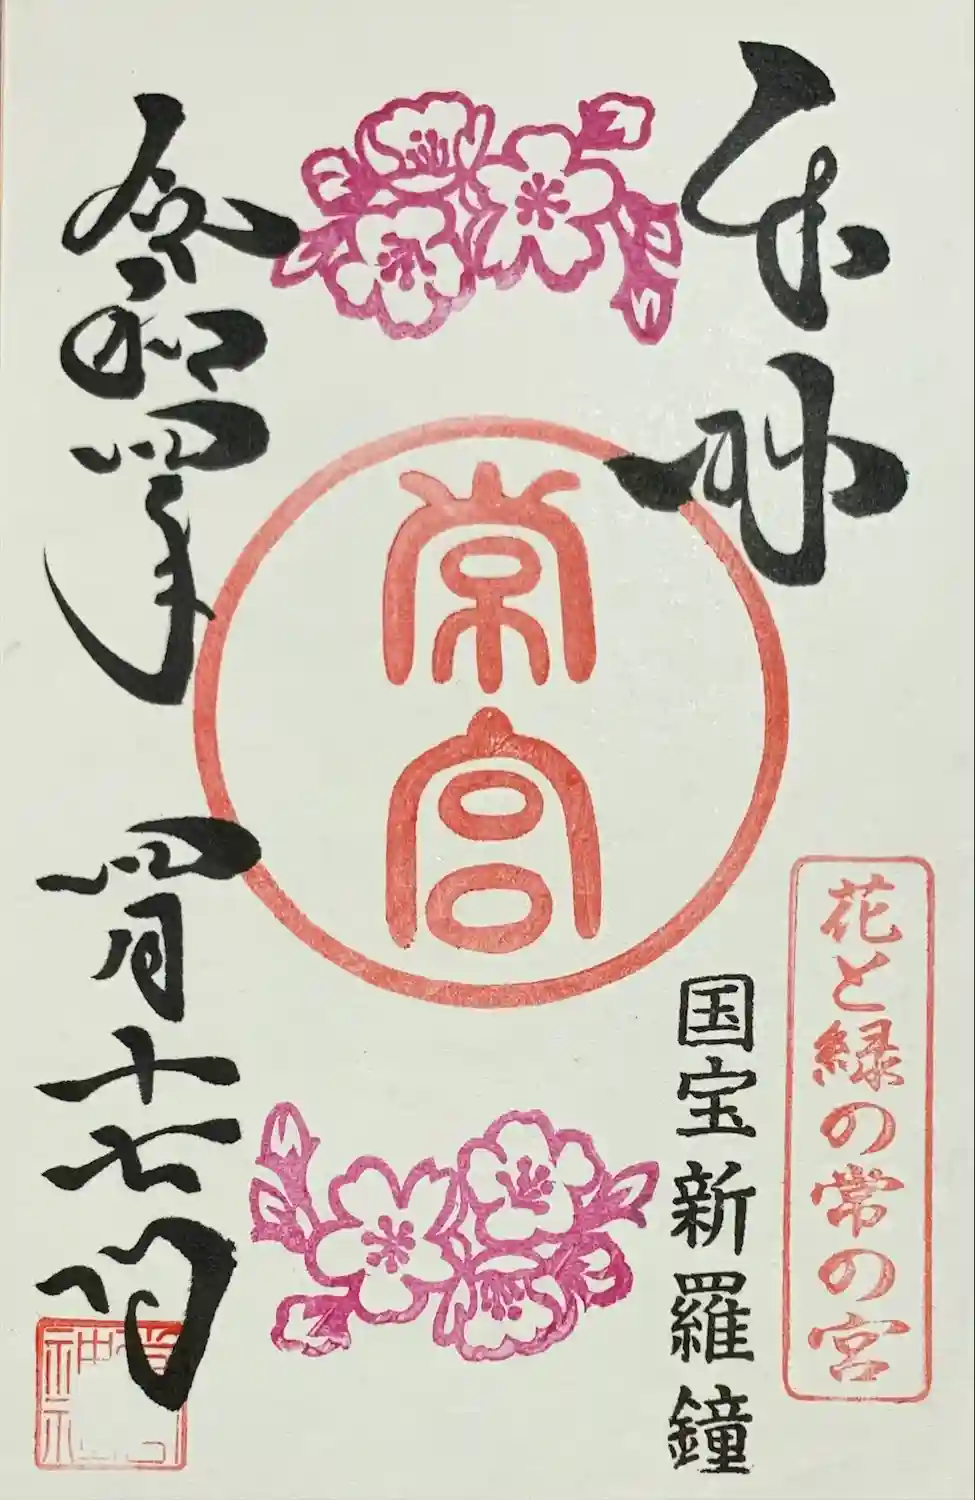 奉拝
花と緑の常の宮
国宝新羅鐘
常宮
令和四年 四月十七日